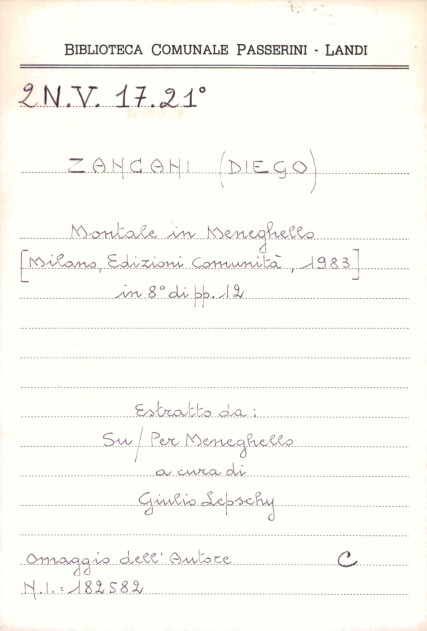 BIBLIOTECA COMUNALE PASSERINI - LANDI
2 N.V. 17.21°
ZANCANI (DIEGO)
Montale in Meneghello
[Milano, Edizioni Comunità, 1983]
in 8° di pp. 12
Estratto da:
Su/Per Meneghello
a cura di
Giulio Lepschy
Omaggio dell'Autore C
N.I.: 182582